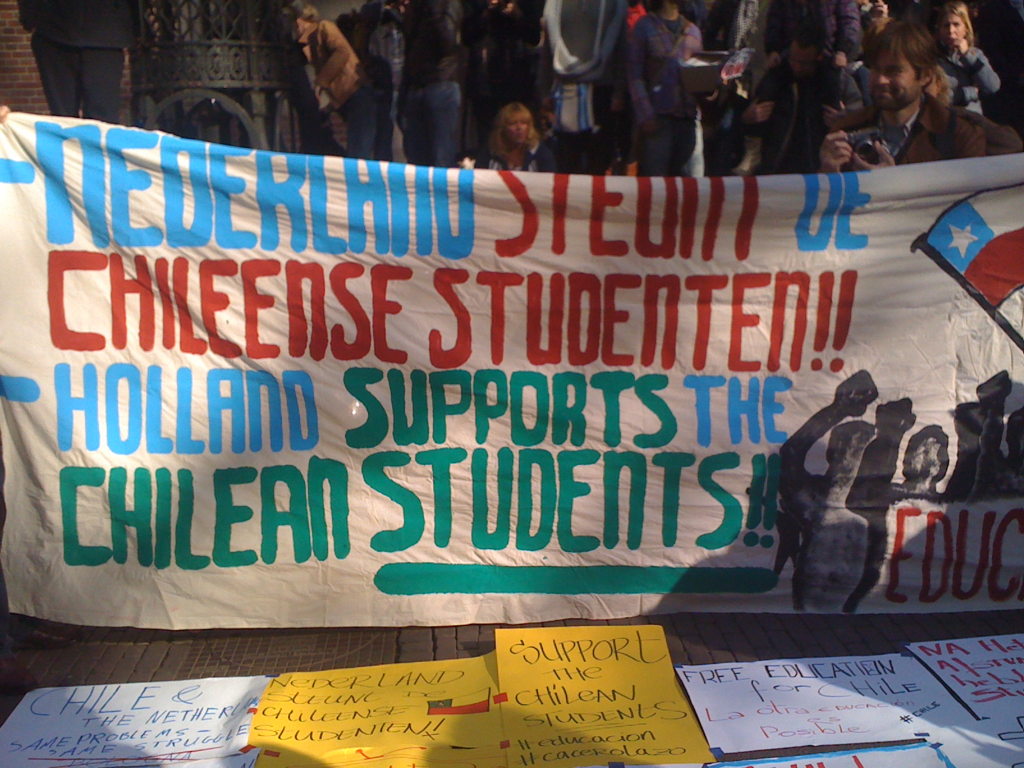 - NEDERLAND STEUNT DE
CHILEENSE STUDENTEN!!
- HOLLAND SUPPORTS THE
CHILEAN STUDENTS!!
EDUC
CHILE &
THE NETHERL
SAME PROBLEMS -
SAME STRUGGLE
NEDERLAND
STEUNT DE
CHILEENSE
STUDENTEN!
SUPPORT
THE
CHILEAN
STUDENTS
#educacion
#cacerolazo
FREE EDUCATION
for CHILE
La otra educacion
es
Posible
NA